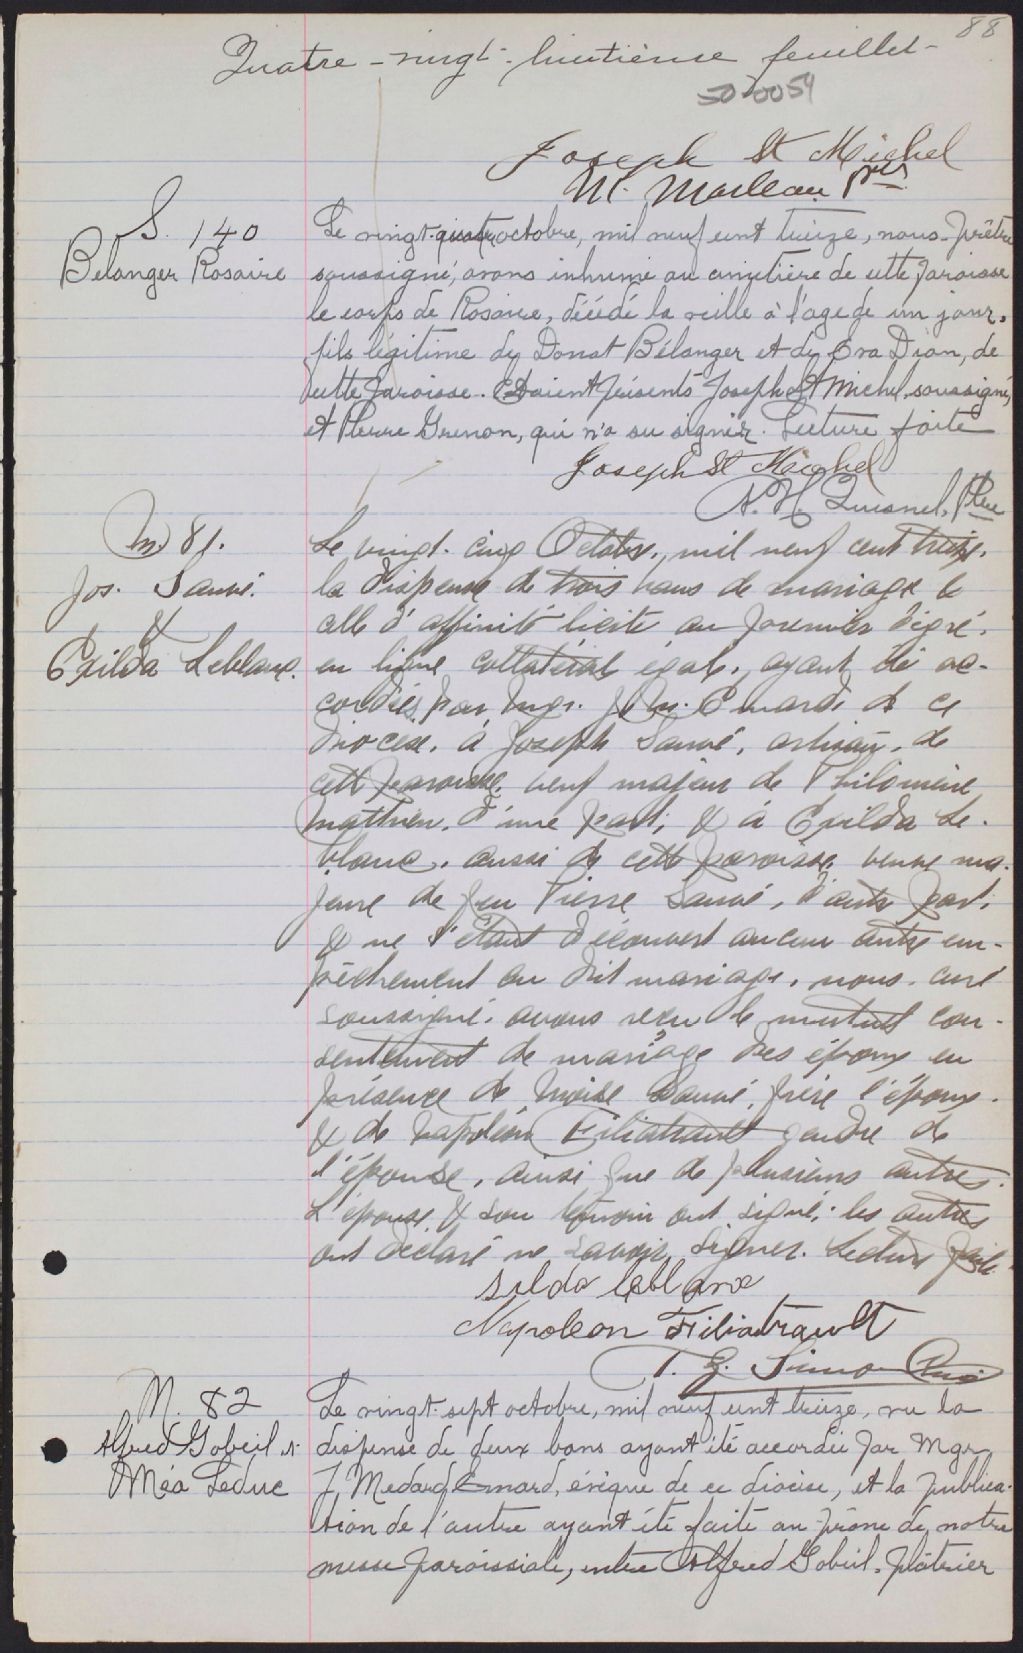 88
Quatre-vingt-huitième feuillet-
50-0054
Joseph St Michel
M. Marleau ptre
S. 140
Belanger Rosaire
Le vingt-quatre octobre, mil neuf cent treize, nous-prêtre
soussigné, avons inhumé au cimetière de cette paroisse
le corps de Rosaire, décédé la veille à l'age de un jour,
fils légitime de Donat Bélanger et de Eva Dion, de
cette paroisse. Etaient présents Joseph St Michel, soussigné,
et Pierre Grenon, qui n'a su signer. Lecture faite
Joseph St Michel
A. H. Quesnel, Ptre
M 81.
Jos. Sauvé.
&
Exilda Leblanc.
Le vingt-cinq Octobre, mil neuf cent treize.
la dispense de trois bans de mariage &
celle d'affinité licite au premier degré.
en ligne collatéral égale, ayant été ac-
cordées, par Mgr. J. M. Emard de ce
diocèse, à Joseph Sauvé, artisan, de
cette paroisse, veuf majeur de Philomène
Matthieu, d'une part; & à Exilda Le-
blanc, aussi de cette paroisse, veuve ma-
jeure de feu Pierre Sauvé, d'autre part.
& ne s'étant découvert aucun autre em-
pêchement au dit mariage, nous curé
soussigné, avons reçu le mutuel con-
sentement de mariage des époux en
présence de Moïse Sauvé, frère l'époux.
& de Napoléon Filiatrault gendre de
l'épouse, ainsi que de plusieurs autres.
L'épouse & son témoin ont signé; les autres
ont déclaré ne savoir signer. Lecture faite.
Silda leblanc
Napoleon Filiatrault
M. 82
Alfred Gobeil et
Améa Leduc
Le vingt-sept octobre, mil neuf cent treize, vu la
dispense de deux bans ayant été accordée par Mgr
J. Medard Emard, évêque de ce diocèse, et la publica-
tion de l'autre ayant été faite au prône de notre
messe paroissiale, entre Alfred Gobeil, plâtrier